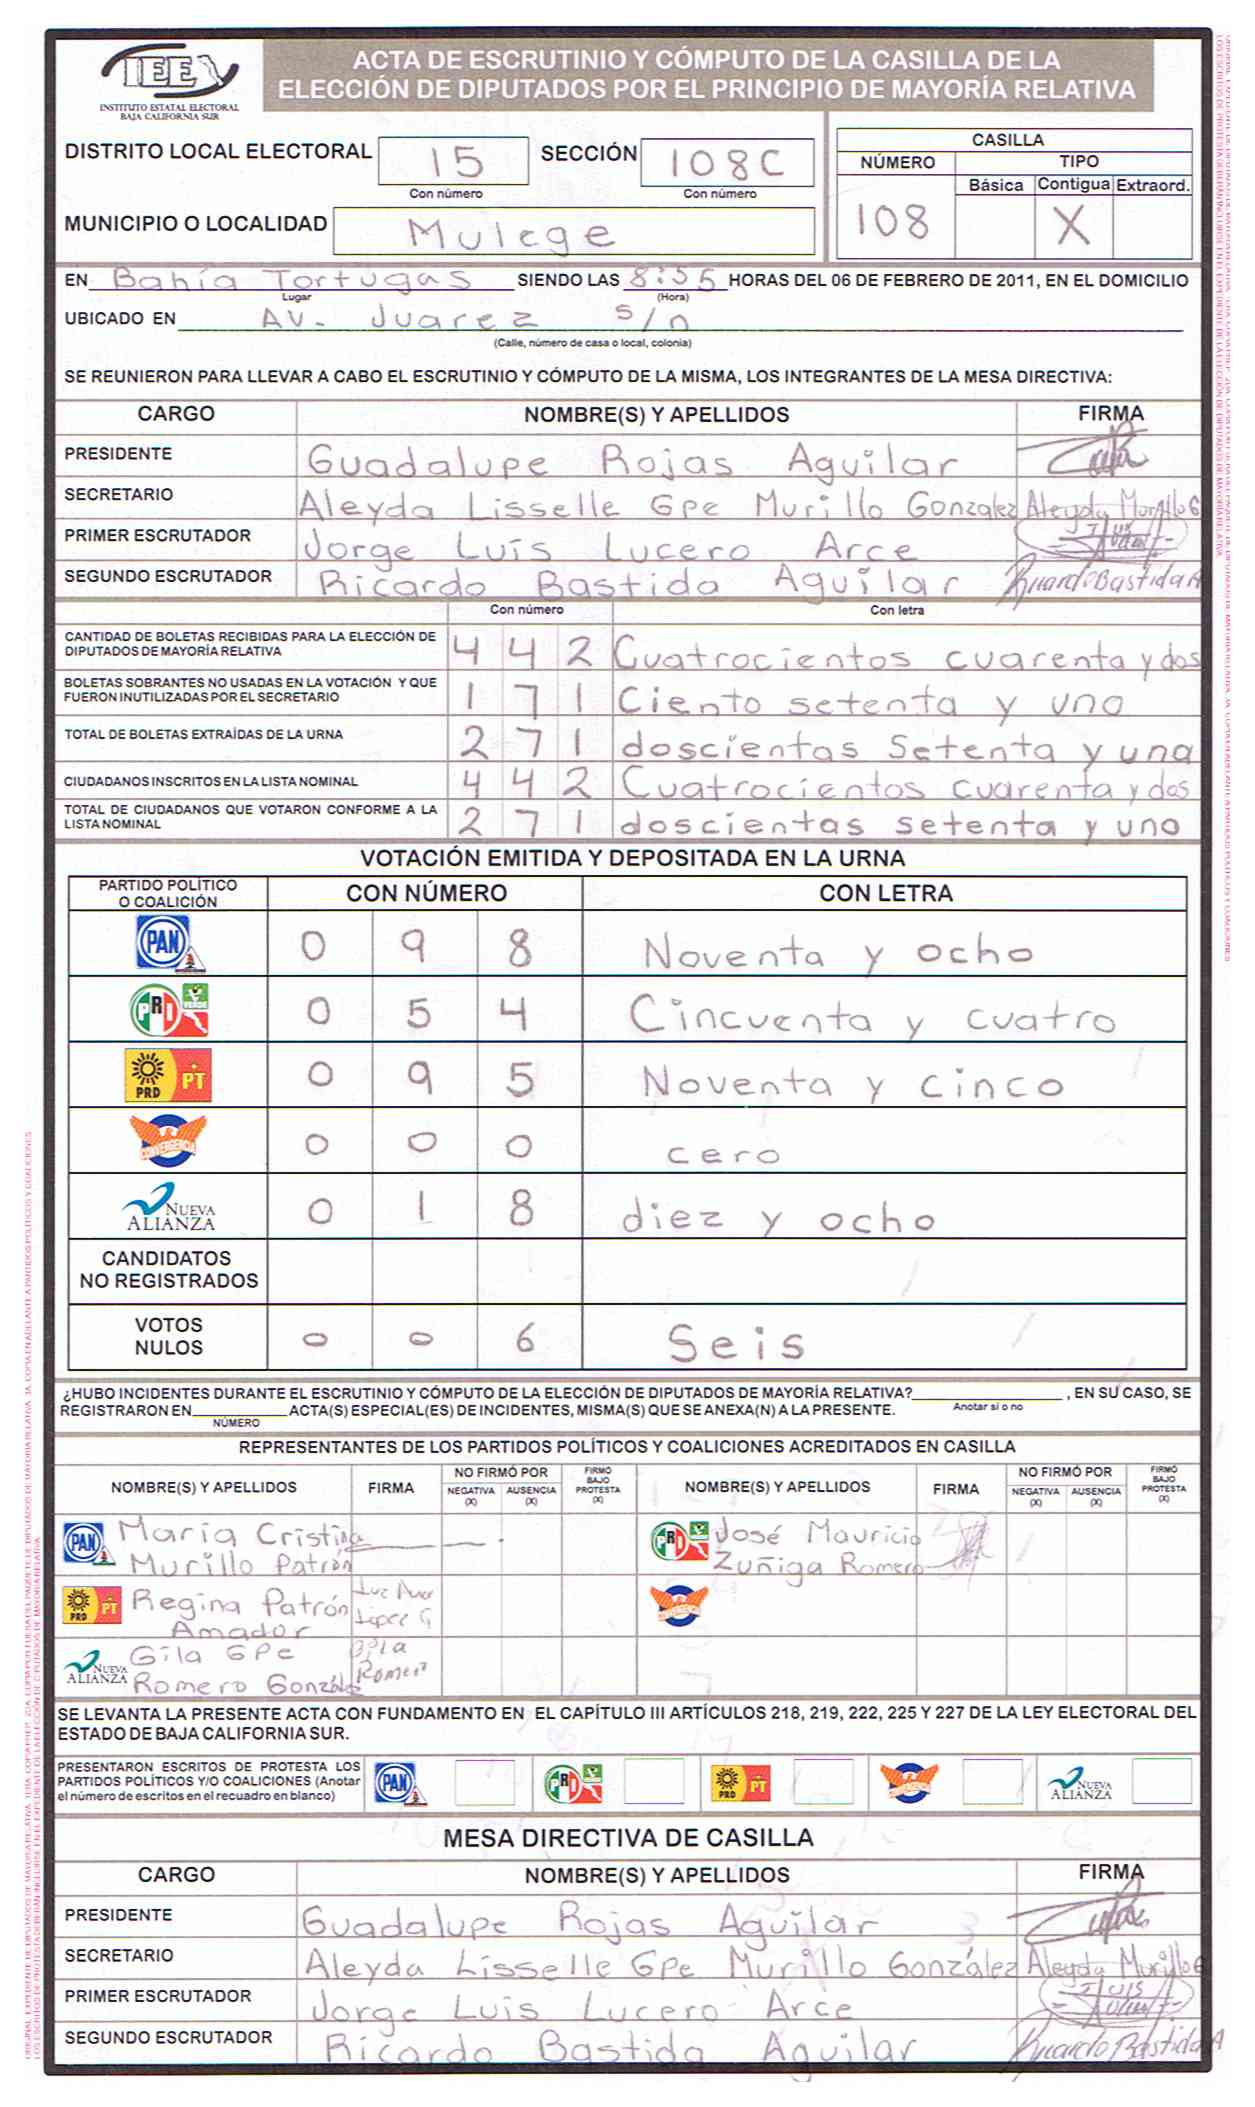 IEE
INSTITUTO ESTATAL ELECTORAL
BAJA CALIFORNIA SUR
ACTA DE ESCRUTINIO Y CÓMPUTO DE LA CASILLA DE LA
ELECCIÓN DE DIPUTADOS POR EL PRINCIPIO DE MAYORÍA RELATIVA
DISTRITO LOCAL ELECTORAL 15 SECCIÓN 108C
Con número Con número
CASILLA
NÚMERO TIPO
Básica Contigua Extraord.
108 X
MUNICIPIO O LOCALIDAD Mulege
EN Bahía Tortugas SIENDO LAS HORAS DEL 06 DE FEBRERO DE 2011, EN EL DOMICILIO
Lugar (Hora)
UBICADO EN AV. Juarez s/n
(Calle, número de casa o local, colonia)
SE REUNIERON PARA LLEVAR A CABO EL ESCRUTINIO Y CÓMPUTO DE LA MISMA, LOS INTEGRANTES DE LA MESA DIRECTIVA:
CARGO NOMBRE(S) Y APELLIDOS FIRMA
PRESIDENTE Guadalupe Rojas Aguilar
SECRETARIO Aleyda Lisselle Gpe Murillo Gonzalez Aleyda Murillo G
PRIMER ESCRUTADOR Jorge Luís Lucero Arce
SEGUNDO ESCRUTADOR Ricardo Bastida Aguilar Ricardo Bastida A
Con número Con letra
CANTIDAD DE BOLETAS RECIBIDAS PARA LA ELECCIÓN DE
DIPUTADOS DE MAYORÍA RELATIVA 4 4 2 Cuatrocientos cuarenta y dos
BOLETAS SOBRANTES NO USADAS EN LA VOTACIÓN Y QUE
FUERON INUTILIZADAS POR EL SECRETARIO 1 7 1 Ciento setenta y uno
TOTAL DE BOLETAS EXTRAÍDAS DE LA URNA 2 7 1 doscientas Setenta y una
CIUDADANOS INSCRITOS EN LA LISTA NOMINAL 4 4 2 Cuatrocientos cuarenta y dos
TOTAL DE CIUDADANOS QUE VOTARON CONFORME A LA
LISTA NOMINAL 2 7 1 doscientas setenta y uno
VOTACIÓN EMITIDA Y DEPOSITADA EN LA URNA
PARTIDO POLÍTICO
O COALICIÓN CON NÚMERO CON LETRA
PAN 0 9 8 Noventa y ocho
PRI VERDE 0 5 4 Cincuenta y cuatro
PRD PT 0 9 5 Noventa y cinco
CONVERGENCIA 0 0 0 cero
NUEVA ALIANZA 0 1 8 diez y ocho
CANDIDATOS
NO REGISTRADOS
VOTOS
NULOS 0 0 6 Seis
¿HUBO INCIDENTES DURANTE EL ESCRUTINIO Y CÓMPUTO DE LA ELECCIÓN DE DIPUTADOS DE MAYORÍA RELATIVA? , EN SU CASO, SE
Anotar sí o no
REGISTRARON EN ACTA(S) ESPECIAL(ES) DE INCIDENTES, MISMA(S) QUE SE ANEXA(N) A LA PRESENTE.
NÚMERO
REPRESENTANTES DE LOS PARTIDOS POLÍTICOS Y COALICIONES ACREDITADOS EN CASILLA
NOMBRE(S) Y APELLIDOS FIRMA NO FIRMÓ POR NEGATIVA (X) AUSENCIA (X) FIRMÓ BAJO PROTESTA (X) NOMBRE(S) Y APELLIDOS FIRMA NO FIRMÓ POR NEGATIVA (X) AUSENCIA (X) FIRMÓ BAJO PROTESTA (X)
PAN María Cristina
Murillo Patrón
PRI José Mauricio
Zuñiga Romero
PRD PT Regina Patrón
Amador
CONVERGENCIA
NUEVA ALIANZA Gila GPe
Romero González Romero
SE LEVANTA LA PRESENTE ACTA CON FUNDAMENTO EN EL CAPÍTULO III ARTÍCULOS 218, 219, 222, 225 Y 227 DE LA LEY ELECTORAL DEL
ESTADO DE BAJA CALIFORNIA SUR.
PRESENTARON ESCRITOS DE PROTESTA LOS
PARTIDOS POLÍTICOS Y/O COALICIONES (Anotar
el número de escritos en el recuadro en blanco)
PAN PRI PRD PT CONVERGENCIA NUEVA ALIANZA
MESA DIRECTIVA DE CASILLA
CARGO NOMBRE(S) Y APELLIDOS FIRMA
PRESIDENTE Guadalupe Rojas Aguilar
SECRETARIO Aleyda Lisselle Gpe Murillo González Aleyda Murillo G
PRIMER ESCRUTADOR Jorge Luis Lucero Arce
SEGUNDO ESCRUTADOR Ricardo Bastida Aguilar Ricardo Bastida A